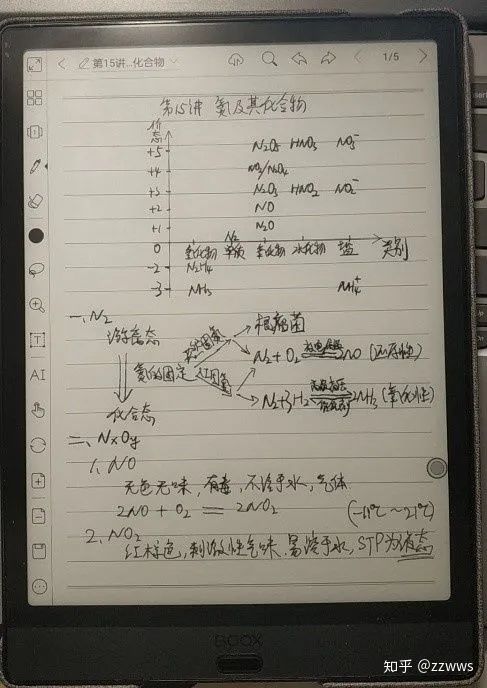 第15讲...化合物
1/5
第15讲 氮及其化合物
价态
+5 N₂O₅ HNO₃ NO₃⁻
+4 NO₂/N₂O₄
+3 N₂O₃ HNO₂ NO₂⁻
+2 NO
+1 N₂O
N₂
0 氢化物 单质 氧化物 水化物 盐 类别
-2 N₂H₄
-3 NH₃ NH₄⁺
一、N₂
游离态
根瘤菌
氮的固定
N₂+O₂ 2NO (还原性)
人工固氮
N₂+3H₂ 2NH₃ (氧化性)
化合态
二、NxOy
1. NO
无色无味,有毒,不溶于水,气体
2NO + O₂ = 2NO₂
(-11℃~21℃)
2. NO₂
红棕色,刺激性气味,易溶于水,STP为液态
BOOX
知乎 @zzwws